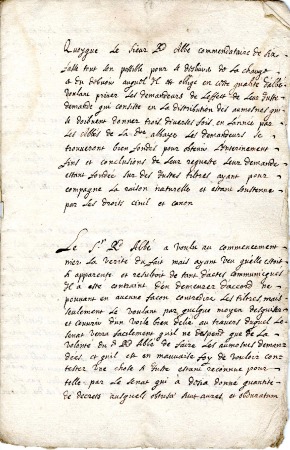 Quoyque Le Sieur Rd Abbe commendataire de
fasse tout son possible pour se desbouter de La charge
a du debuoir auquel Il est oblige en cette qualite d'abbe
voulant priver Les demandeurs de L'effect de leur Juste
demande qui consiste en La distribution des aumosnes qui
se doibuent donner trois diverses fois en L'annee par
Les Abbes de La dte abbaye Les demandeurs se
treuveront bien fondes pour obtenir L'enterinement
fins et conclusions de Leur requeste Leur demande
estant fondee sur des Justes tiltres ayant pour
compagne La raison naturelle et estant soustenue
par Les droits civil et canon
Le Sr Rd Abbe a voulu au commencement
nier La verite du fait mais ayant veu qu'elle estoit
si apparente et resultoit de tant d'actes communiques
Il a este contraint d'en demeurer d'accord ne
pouvant en aucune facon contredire Les tiltres mais
seulement Le voulant par quelque moyen desguiser
et couvrir d'un voile bien delie au travers duquel Le
Senat verra facilement qu'il ne despend que de La
volonte du d Rd Abbe de faire Les aumosnes deman
dees, et qu'il est en mauvaise foy de vouloir con
tester Une chose si Juste estant reconnue pour
telle par Le Senat qui a desia donne quantite
de decrets ausquels